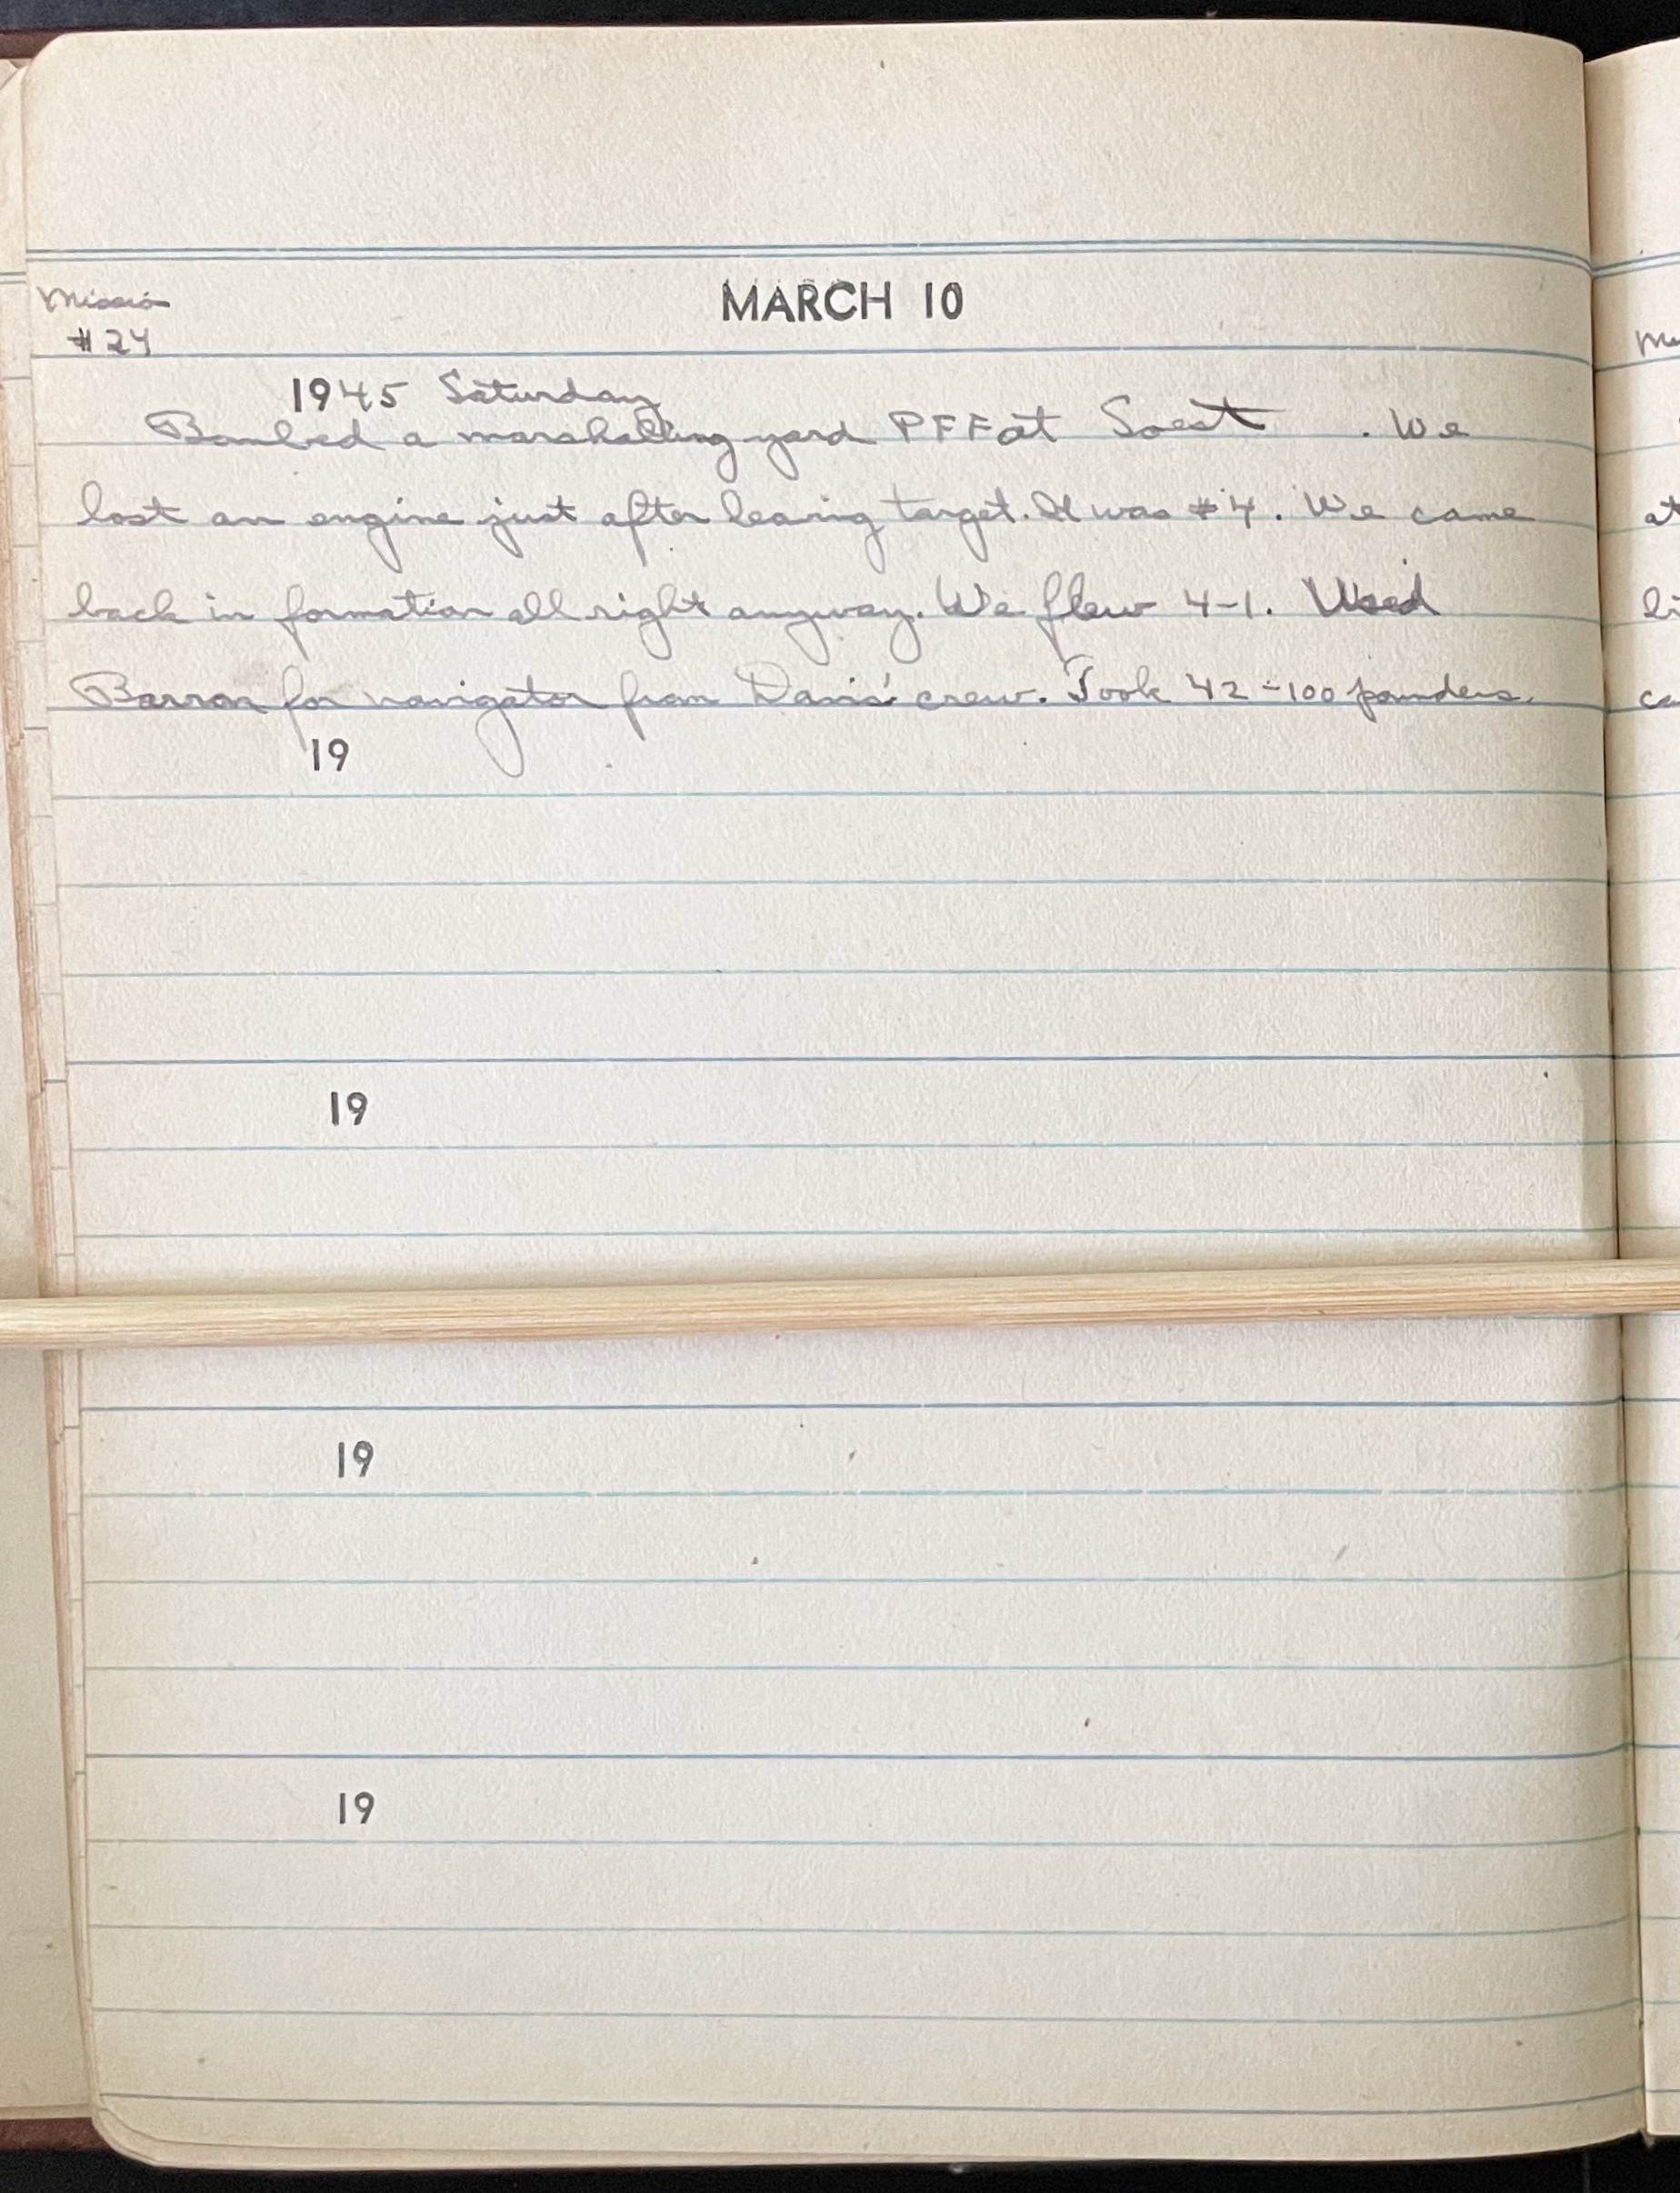 MARCH 10
Mission
#24
1945 Saturday
Bombed a marshalling yard PFF at Soest . We
lost an engine just after leaving target. It was #4. We came
back in formation all right anyway. We flew 4-1. Used
Barron for navigator from Davis' crew. Took 42-100 pounders.
19
19
19
19
at
ca